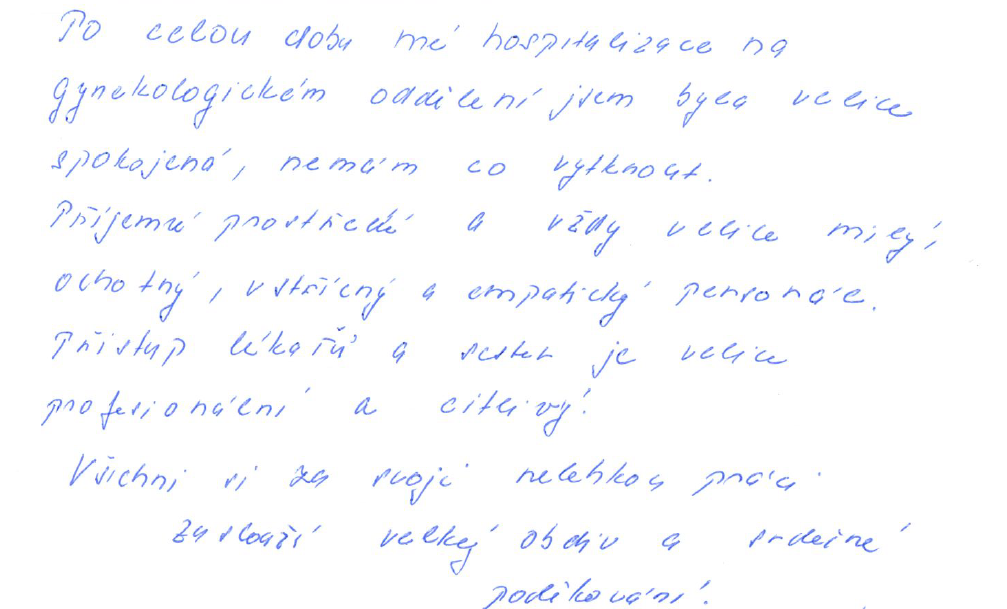 Po celou dobu mé hospitalizace na
gynekologickém oddělení jsem byla velice
spokojená, nemám co vytknout.
Příjemné prostředí a vždy velice milý,
ochotný, vstřícný a empatický personál.
Přístup lékařů a sester je velice
profesionální a citlivý.
Všichni si za svoji nelehkou práci
zaslouží velký obdiv a srdečné
poděkování.